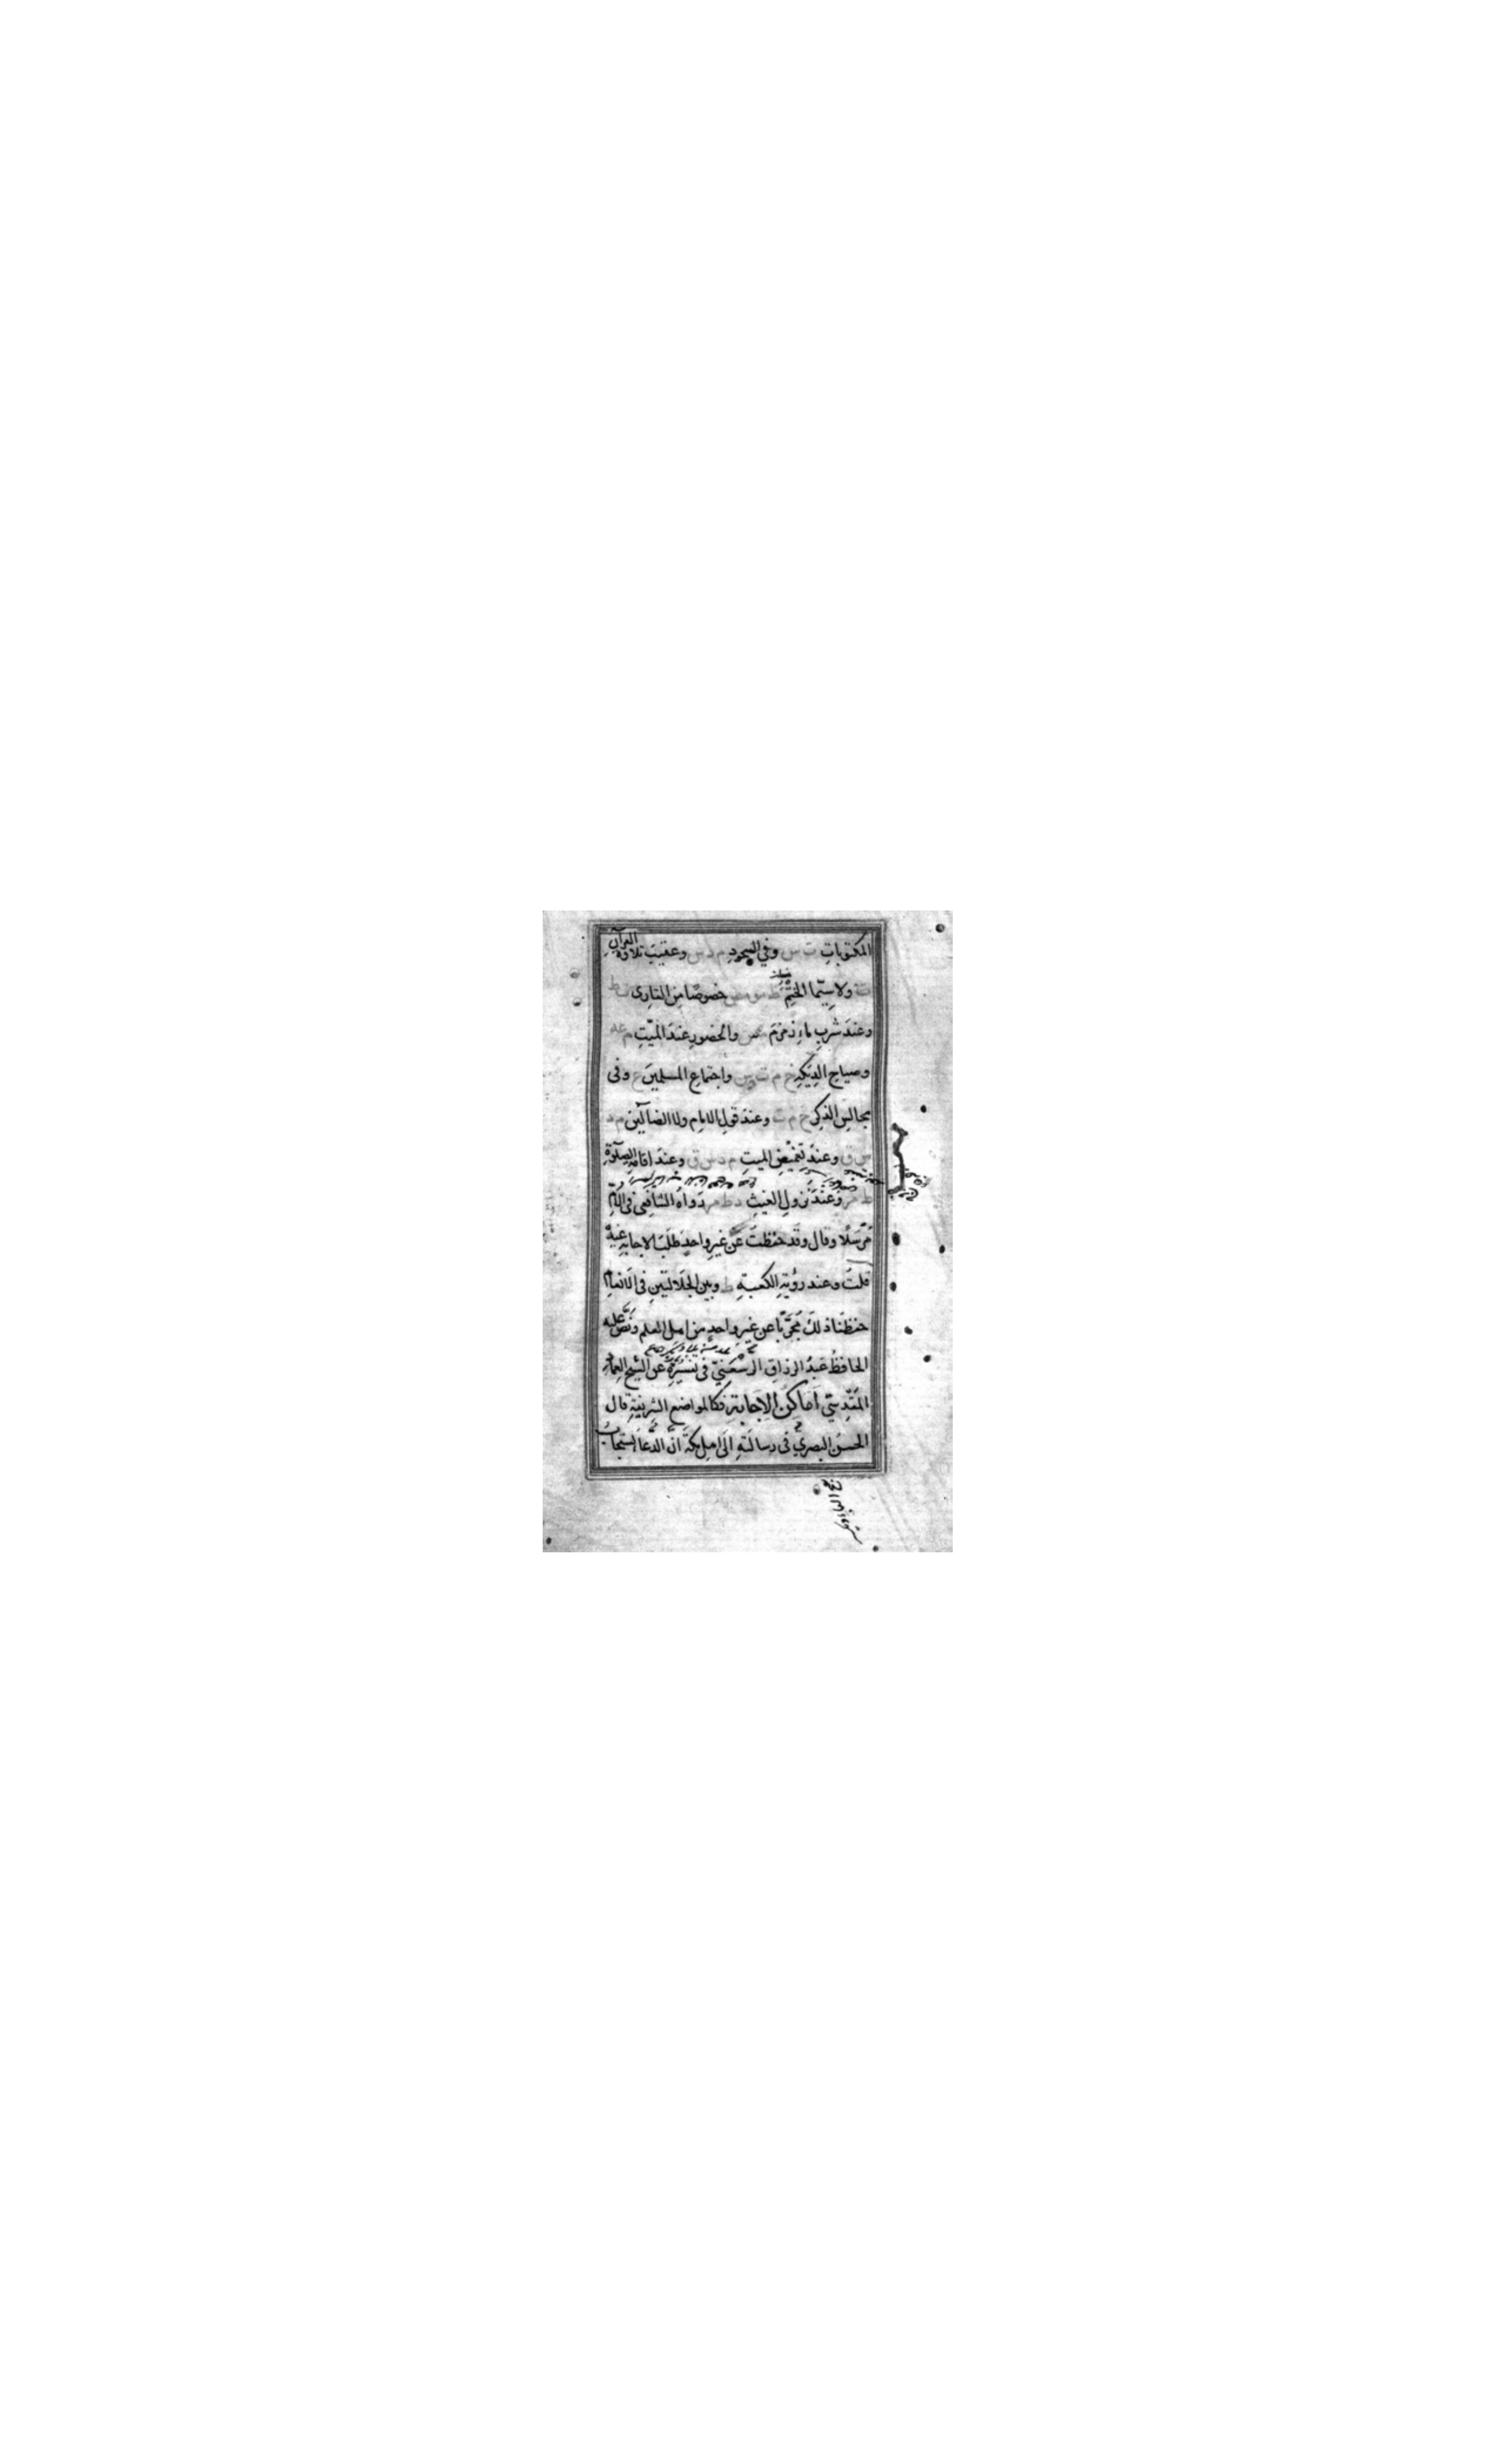 المكتوباتِ ت س وفي السجودِ م د س وعقيبَ تلاوةِ القرآنِ
ت ولا سِيَّما الختمِ ط مو مص خصوصًا مِنَ القارِى ت ط
وعندَ شربِ ماءِ زمزمَ مس والحضورِ عندَ الميّتِ م عه
وصياحِ الدِيَكةِ خ م ت س واجتماعِ المسلمينَ ع وفى
مجالسِ الذِكرِ خ م ت وعندَ قولِ الامامِ ولا الضالّين م د
س ق وعندَ تغميضِ الميتِ م د س ق وعندَ اقامةِ الصلوةِ
ط مر وعندَ نزولِ الغيثِ د ط مر رواه الشافعى فى الامّ
مُرسَلًا وقال وقد حفظتُ عن غيرِ واحدٍ طلبَ الاجابةِ عندَ
قلتُ وعند رؤيةِ الكعبةِ ط وبين الجلالتينِ فى الانعامِ
حفظنا ذلك مُجَرَّبًا عن غيرِ واحدٍ من اهل العلم ونَصَّ عليه
الحافظُ عبدُ الرزاقِ الرسْعَنيّ فى تفسيرِه عن الشيخِ العمادِ
المقدِسيّ اَماكنُ الاِجَابَةِ فكالمواضعِ الشريفةِ قال
الحسنُ البصريّ فى رسالتهِ الى اهلِ مكةَ انّ الدّعاءَ يُستجابُ